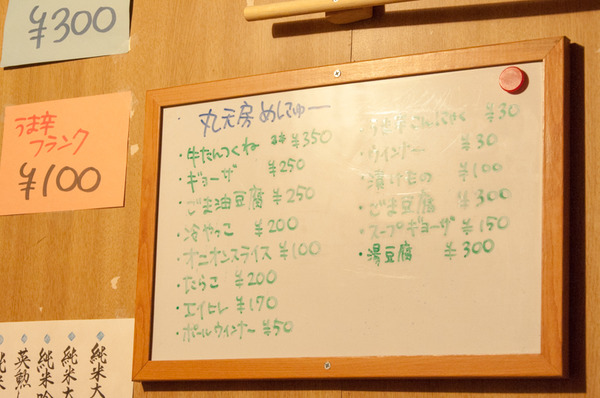 ¥300
うま辛
フランク
¥100
丸天房 めにゅー
・牛たんつくね ¥350
・ギョーザ ¥250
・ごま油豆腐 ¥250
・冷やっこ ¥200
・オニオンスライス ¥100
・たらこ ¥200
・エイヒレ ¥170
・ポールウインナー ¥50
¥30
・ウインナー ¥30
・漬けもの ¥100
・ごま豆腐 ¥300
・スープギョーザ ¥150
・湯豆腐 ¥300
純米大
純米大
純米吟
英勲
純米